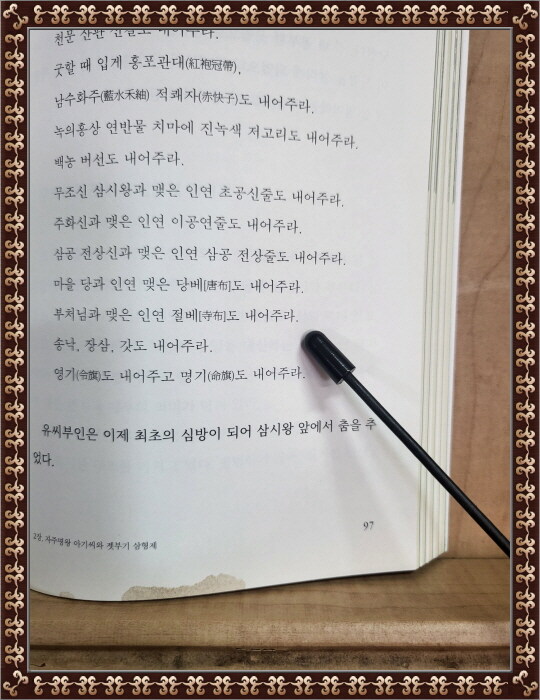 천문 산판 신칼도 내어주라.
굿할 때 입게 홍포관대(紅袍冠帶),
남수화주(藍水禾紬) 적쾌자(赤快子)도 내어주라.
녹의홍상 연반물 치마에 진녹색 저고리도 내어주라.
백농 버선도 내어주라.
무조신 삼시왕과 맺은 인연 초공신줄도 내어주라.
주화신과 맺은 인연 이공연줄도 내어주라.
삼공 전상신과 맺은 인연 삼공 전상줄도 내어주라.
마을 당과 인연 맺은 당베[唐布]도 내어주라.
부처님과 맺은 인연 절베[寺布]도 내어주라.
송낙, 장삼, 갓도 내어주라.
영기(令旗)도 내어주고 명기(命旗)도 내어주라.
유씨부인은 이제 최초의 심방이 되어 삼시왕 앞에서 춤을 추
었다.
97
2장. 자주명왕 아기씨와 젯부기 삼형제